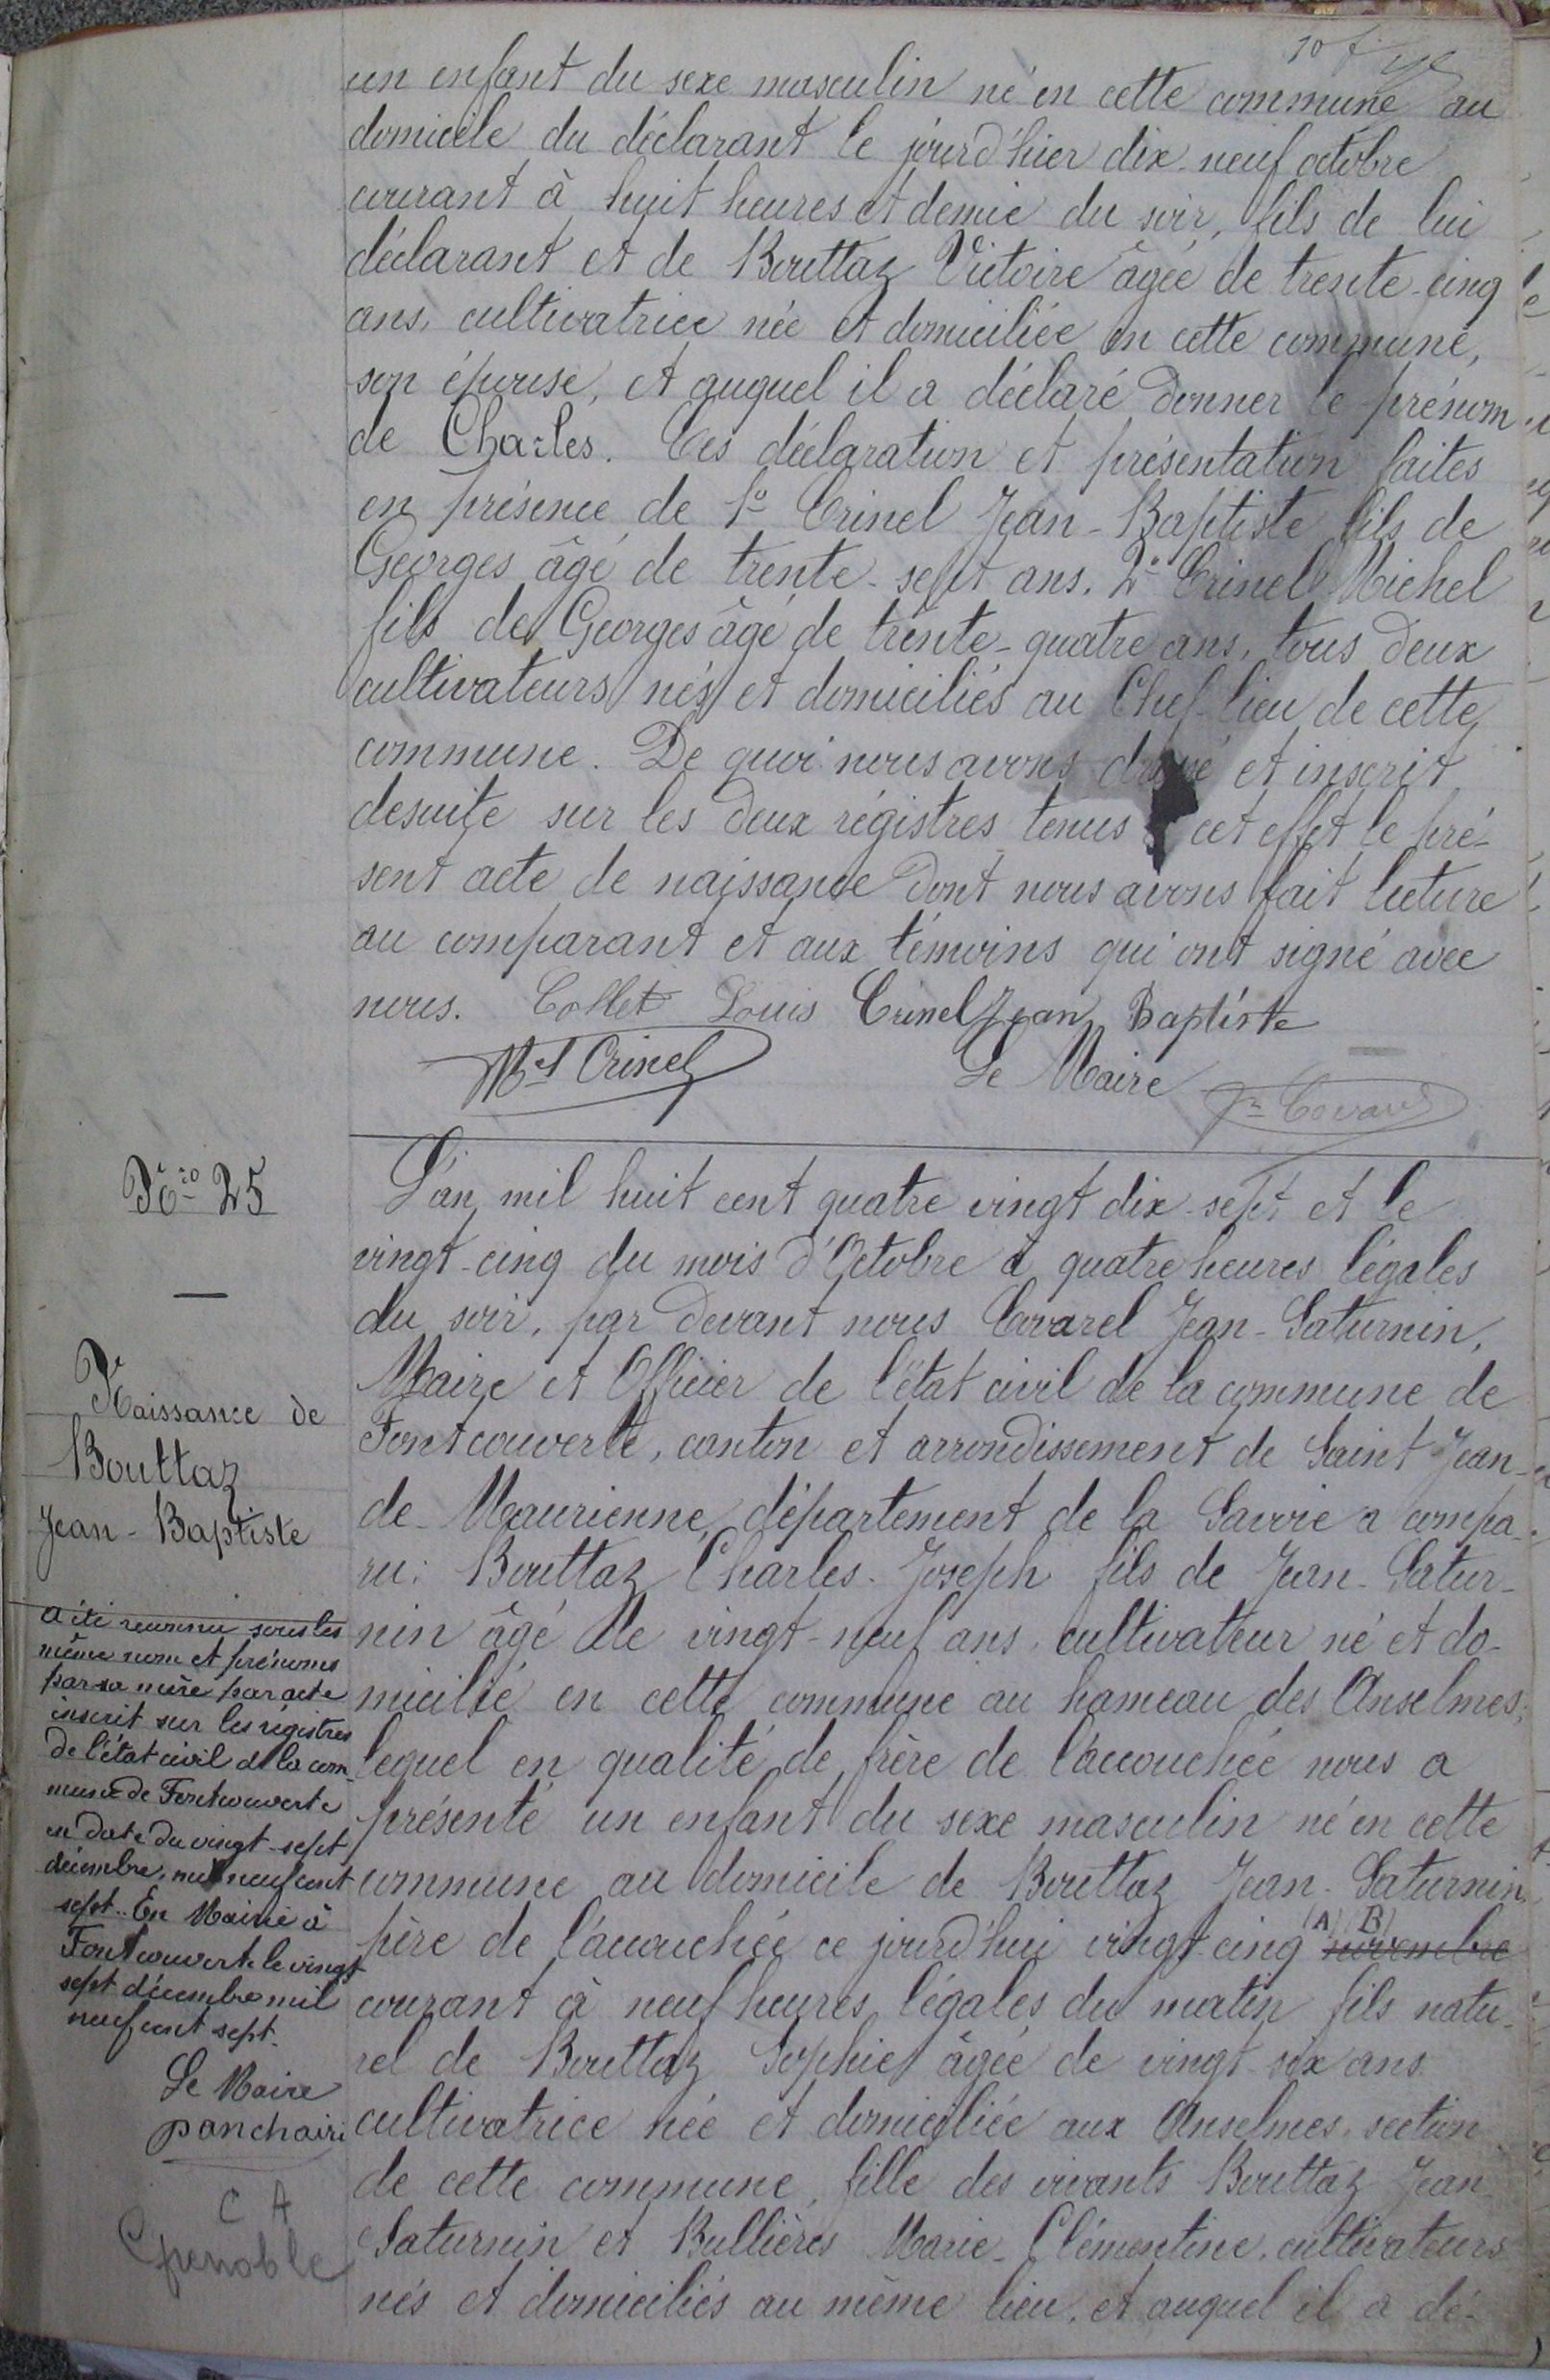 un enfant du sexe masculin né en cette commune au
domicile du déclarant le jourd'hier dix-neuf octobre
courant à huit heures et demie du soir, fils de lui
déclarant et de Bouttaz Victoire âgée de trente-cinq
ans, cultivatrice née et domiciliée en cette commune,
son épouse, et auquel il a déclaré donner le prénom
de Charles. Ces déclaration et présentation faites
en présence de 1º Crinel Jean-Baptiste fils de
Georges âgé de trente-sept ans, 2º Crinel Michel
fils de Georges âgé de trente-quatre ans, tous deux
cultivateurs nés et domiciliés au Chef-lieu de cette
commune. De quoi nous avons dressé et inscrit
desuite sur les deux régistres tenus cet effet le pré-
sent acte de naissance dont nous avons fait lecture
au comparant et aux témoins qui ont signé avec
nous. Collet Louis Crinel Jean Baptiste
Mel Crinel Le Maire Jn Covarel
Nº 25
Naissance de
Bouttaz
Jean-Baptiste
a été reconnu sous les
même nom et prénoms
par sa mère par acte
inscrit sur les régistres
de l'état civil de la com-
mune de Fontcouverte
en date du vingt-sept
décembre, mil neuf cent
sept. En Mairie à
Fontcouverte le vingt
sept décembre mil
neuf cent sept.
Le Maire
C A
Grenoble
L'an mil huit cent quatre vingt dix-sept et le
vingt-cinq du mois d'Octobre à quatre heures légales
du soir, par devant nous Covarel Jean-Saturnin,
Maire et Officier de l'état civil de la commune de
Fontcouverte, canton et arrondissement de Saint Jean-
de-Maurienne, département de la Savoie a compa-
ru: Bouttaz Charles-Joseph fils de Jean-Satur-
nin âgé de vingt-neuf ans, cultivateur né et do-
micilié en cette commune au hameau des Anselmes;
lequel en qualité de frère de l'accouchée nous a
présenté un enfant du sexe masculin né en cette
commune au domicile de Bouttaz Jean-Saturnin
père de l'accouchée ce jourd'hui vingt-cinq (A) (B) novembre
courant à neuf heures légales du matin fils natu-
rel de Bouttaz Sophie âgée de vingt-six ans
cultivatrice née et domiciliée aux Anselmes, section
de cette commune, fille des vivants Bouttaz Jean
Saturnin et Bullières Marie-Clémentine, cultivateurs
nés et domiciliés au même lieu, et auquel il a dé-